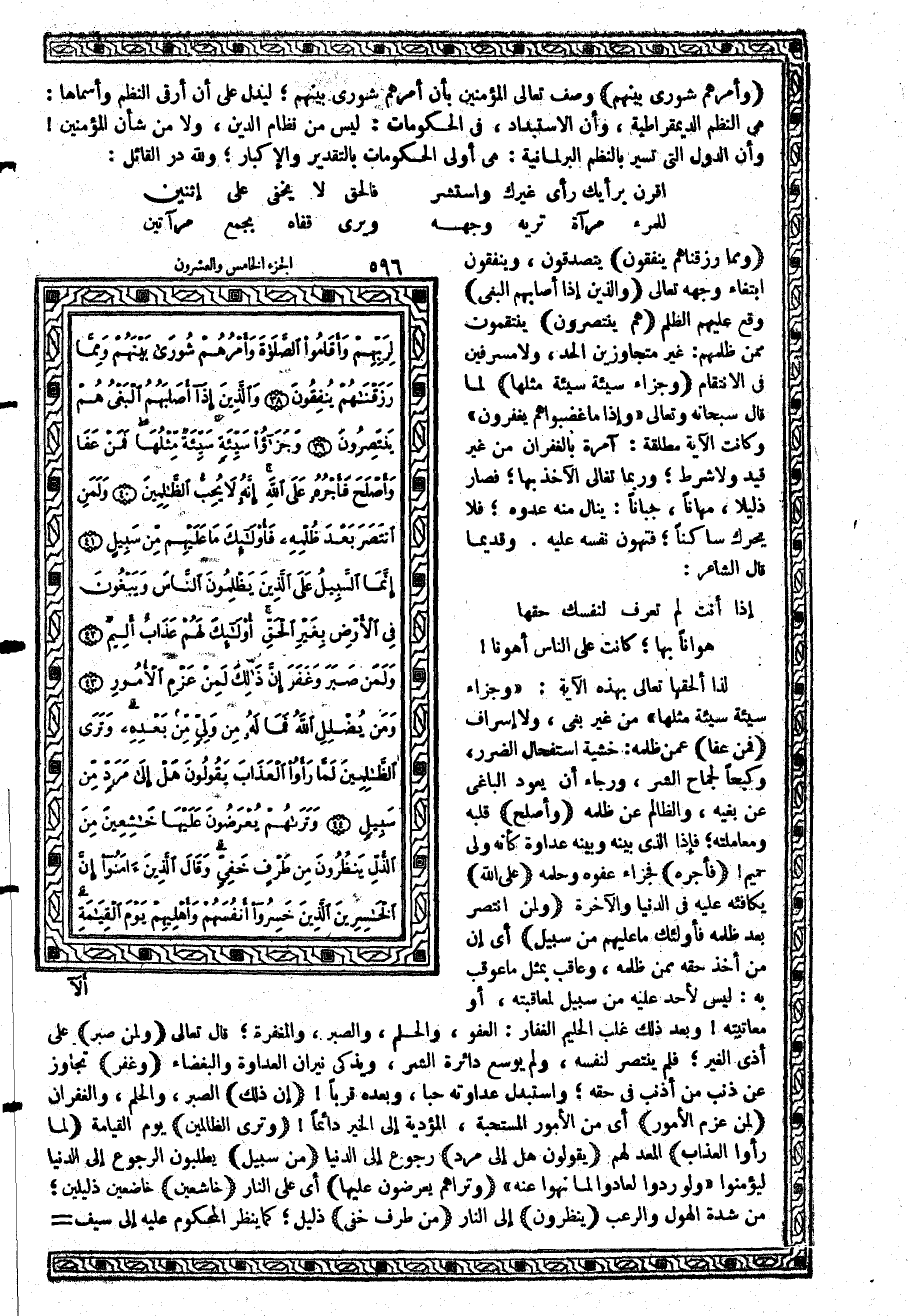 (وأمرهم شورى بينهم) وصف تعالى المؤمنين بأن أمرهم شورى بينهم ؛ ليدل على أن أرقى النظم وأسماها :
هى النظم الديمقراطية ، وأن الاستبداد ، فى الحكومات : ليس من نظام الدين ، ولا من شأن المؤمنين !
وأن الدول التى تسير بالنظم البرلمانية : هى أولى الحكومات بالتقدير والإكبار ؛ ولله در القائل :
اقرن برأيك رأى غيرك واستشر فالحق لا يخفى على إثنين
للمرء مرآة تريه وجهـه ويرى قفاه بجمع مرآتين
(ومما رزقناهم ينفقون) يتصدقون ، وينفقون
ابتغاء وجهه تعالى (والذين إذا أصابهم البغى)
وقع عليهم الظلم (هم ينتصرون) ينتقمون
ممن ظلمهم: غير متجاوزين الحد، ولا مسرفين
فى الانتقام (وجزاء سيئة سيئة مثلها) لما
قال سبحانه وتعالى «وإذا ما غضبوا هم يغفرون»
وكانت الآية مطلقة : آمرة بالغفران من غير
قيد ولا شرط ؛ وربما تغالى الآخذ بها ؛ فصار
ذليلا ، مهاناً ، جباناً : ينال منه عدوه ؛ فلا
يحرك ساكناً ؛ فتهون نفسه عليه . وقديما
قال الشاعر :
إذا أنت لم تعرف لنفسك حقها
هواناً بها ؛ كانت على الناس أهونا !
لذا ألحقها تعالى بهذه الآية : «وجزاء
سيئة سيئة مثلها» من غير بغى ، ولا إسراف
(فمن عفا) عمن ظلمه: خشية استفحال الضرر،
وكبحاً لجماح الشر ، ورجاء أن يعود الباغى
عن بغيه ، والظالم عن ظلمه (وأصلح) قلبه
ومعاملته؛ فإذا الذى بينه وبينه عداوة كأنه ولى
حميم! (فأجره) فجزاء عفوه وحلمه (على الله)
يكافئه عليه فى الدنيا والآخرة (ولمن انتصر
بعد ظلمه فأولئك ما عليهم من سبيل) أى إن
من أخذ حقه ممن ظلمه ، وعاقب بمثل ما عوقب
به : ليس لأحد عليه من سبيل لمعاقبته ، أو
معاتبته ! وبعد ذلك غلب الحليم الغفار : العفو ، والحلم ، والصبر ، والمغفرة ؛ قال تعالى (ولمن صبر) على
أذى الغير ؛ فلم ينتصر لنفسه ، ولم يوسع دائرة الشر ، ويذكى نيران العداوة والبغضاء (وغفر) تجاوز
عن ذنب من أذنب فى حقه ؛ واستبدل عداوته حبا ، وبعده قرباً ! (إن ذلك) الصبر ، والحلم ، والغفران
(لمن عزم الأمور) أى من الأمور المستحبة ، المؤدية إلى الخير دائماً ! (وترى الظالمين) يوم القيامة (لما
رأوا العذاب) المعد لهم (يقولون هل إلى مرد) رجوع إلى الدنيا (من سبيل) يطلبون الرجوع إلى الدنيا
ليؤمنوا «ولو ردوا لعادوا لما نهوا عنه» (وتراهم يعرضون عليها) أى على النار (خاشعين) خاضعين ذليلين ؛
من شدة الهول والرعب (ينظرون) إلى النار (من طرف خفى) ذليل ؛ كما ينظر المحكوم عليه إلى سيف =
٥٩٦ الجزء الخامس والعشرون
لِرَبِّهِمْ وَأَقَامُوا۟ ٱلصَّلَوٰةَ وَأَمْرُهُمْ شُورَىٰ بَيْنَهُمْ وَمِمَّا
رَزَقْنَٰهُمْ يُنفِقُونَ ٣٨ وَٱلَّذِينَ إِذَآ أَصَابَهُمُ ٱلْبَغْىُ هُمْ
يَنتَصِرُونَ ٣٩ وَجَزَٰٓؤُا۟ سَيِّئَةٍ سَيِّئَةٌ مِّثْلُهَا ۖ فَمَنْ عَفَا
وَأَصْلَحَ فَأَجْرُهُۥ عَلَى ٱللَّهِ ۚ إِنَّهُۥ لَا يُحِبُّ ٱلظَّٰلِمِينَ ٤٠ وَلَمَنِ
ٱنتَصَرَ بَعْدَ ظُلْمِهِۦ فَأُو۟لَٰٓئِكَ مَا عَلَيْهِم مِّن سَبِيلٍ ٤١
إِنَّمَا ٱلسَّبِيلُ عَلَى ٱلَّذِينَ يَظْلِمُونَ ٱلنَّاسَ وَيَبْغُونَ
فِى ٱلْأَرْضِ بِغَيْرِ ٱلْحَقِّ ۚ أُو۟لَٰٓئِكَ لَهُمْ عَذَابٌ أَلِيمٌ ٤٢
وَلَمَن صَبَرَ وَغَفَرَ إِنَّ ذَٰلِكَ لَمِنْ عَزْمِ ٱلْأُمُورِ ٤٣
وَمَن يُضْلِلِ ٱللَّهُ فَمَا لَهُۥ مِن وَلِىٍّ مِّنۢ بَعْدِهِۦ ۗ وَتَرَى
ٱلظَّٰلِمِينَ لَمَّا رَأَوُا۟ ٱلْعَذَابَ يَقُولُونَ هَلْ إِلَىٰ مَرَدٍّ مِّن
سَبِيلٍ ٤٤ وَتَرَىٰهُمْ يُعْرَضُونَ عَلَيْهَا خَٰشِعِينَ مِنَ
ٱلذُّلِّ يَنظُرُونَ مِن طَرْفٍ خَفِىٍّ ۗ وَقَالَ ٱلَّذِينَ ءَامَنُوٓا۟ إِنَّ
ٱلْخَٰسِرِينَ ٱلَّذِينَ خَسِرُوٓا۟ أَنفُسَهُمْ وَأَهْلِيهِمْ يَوْمَ ٱلْقِيَٰمَةِ ۗ
ألآ